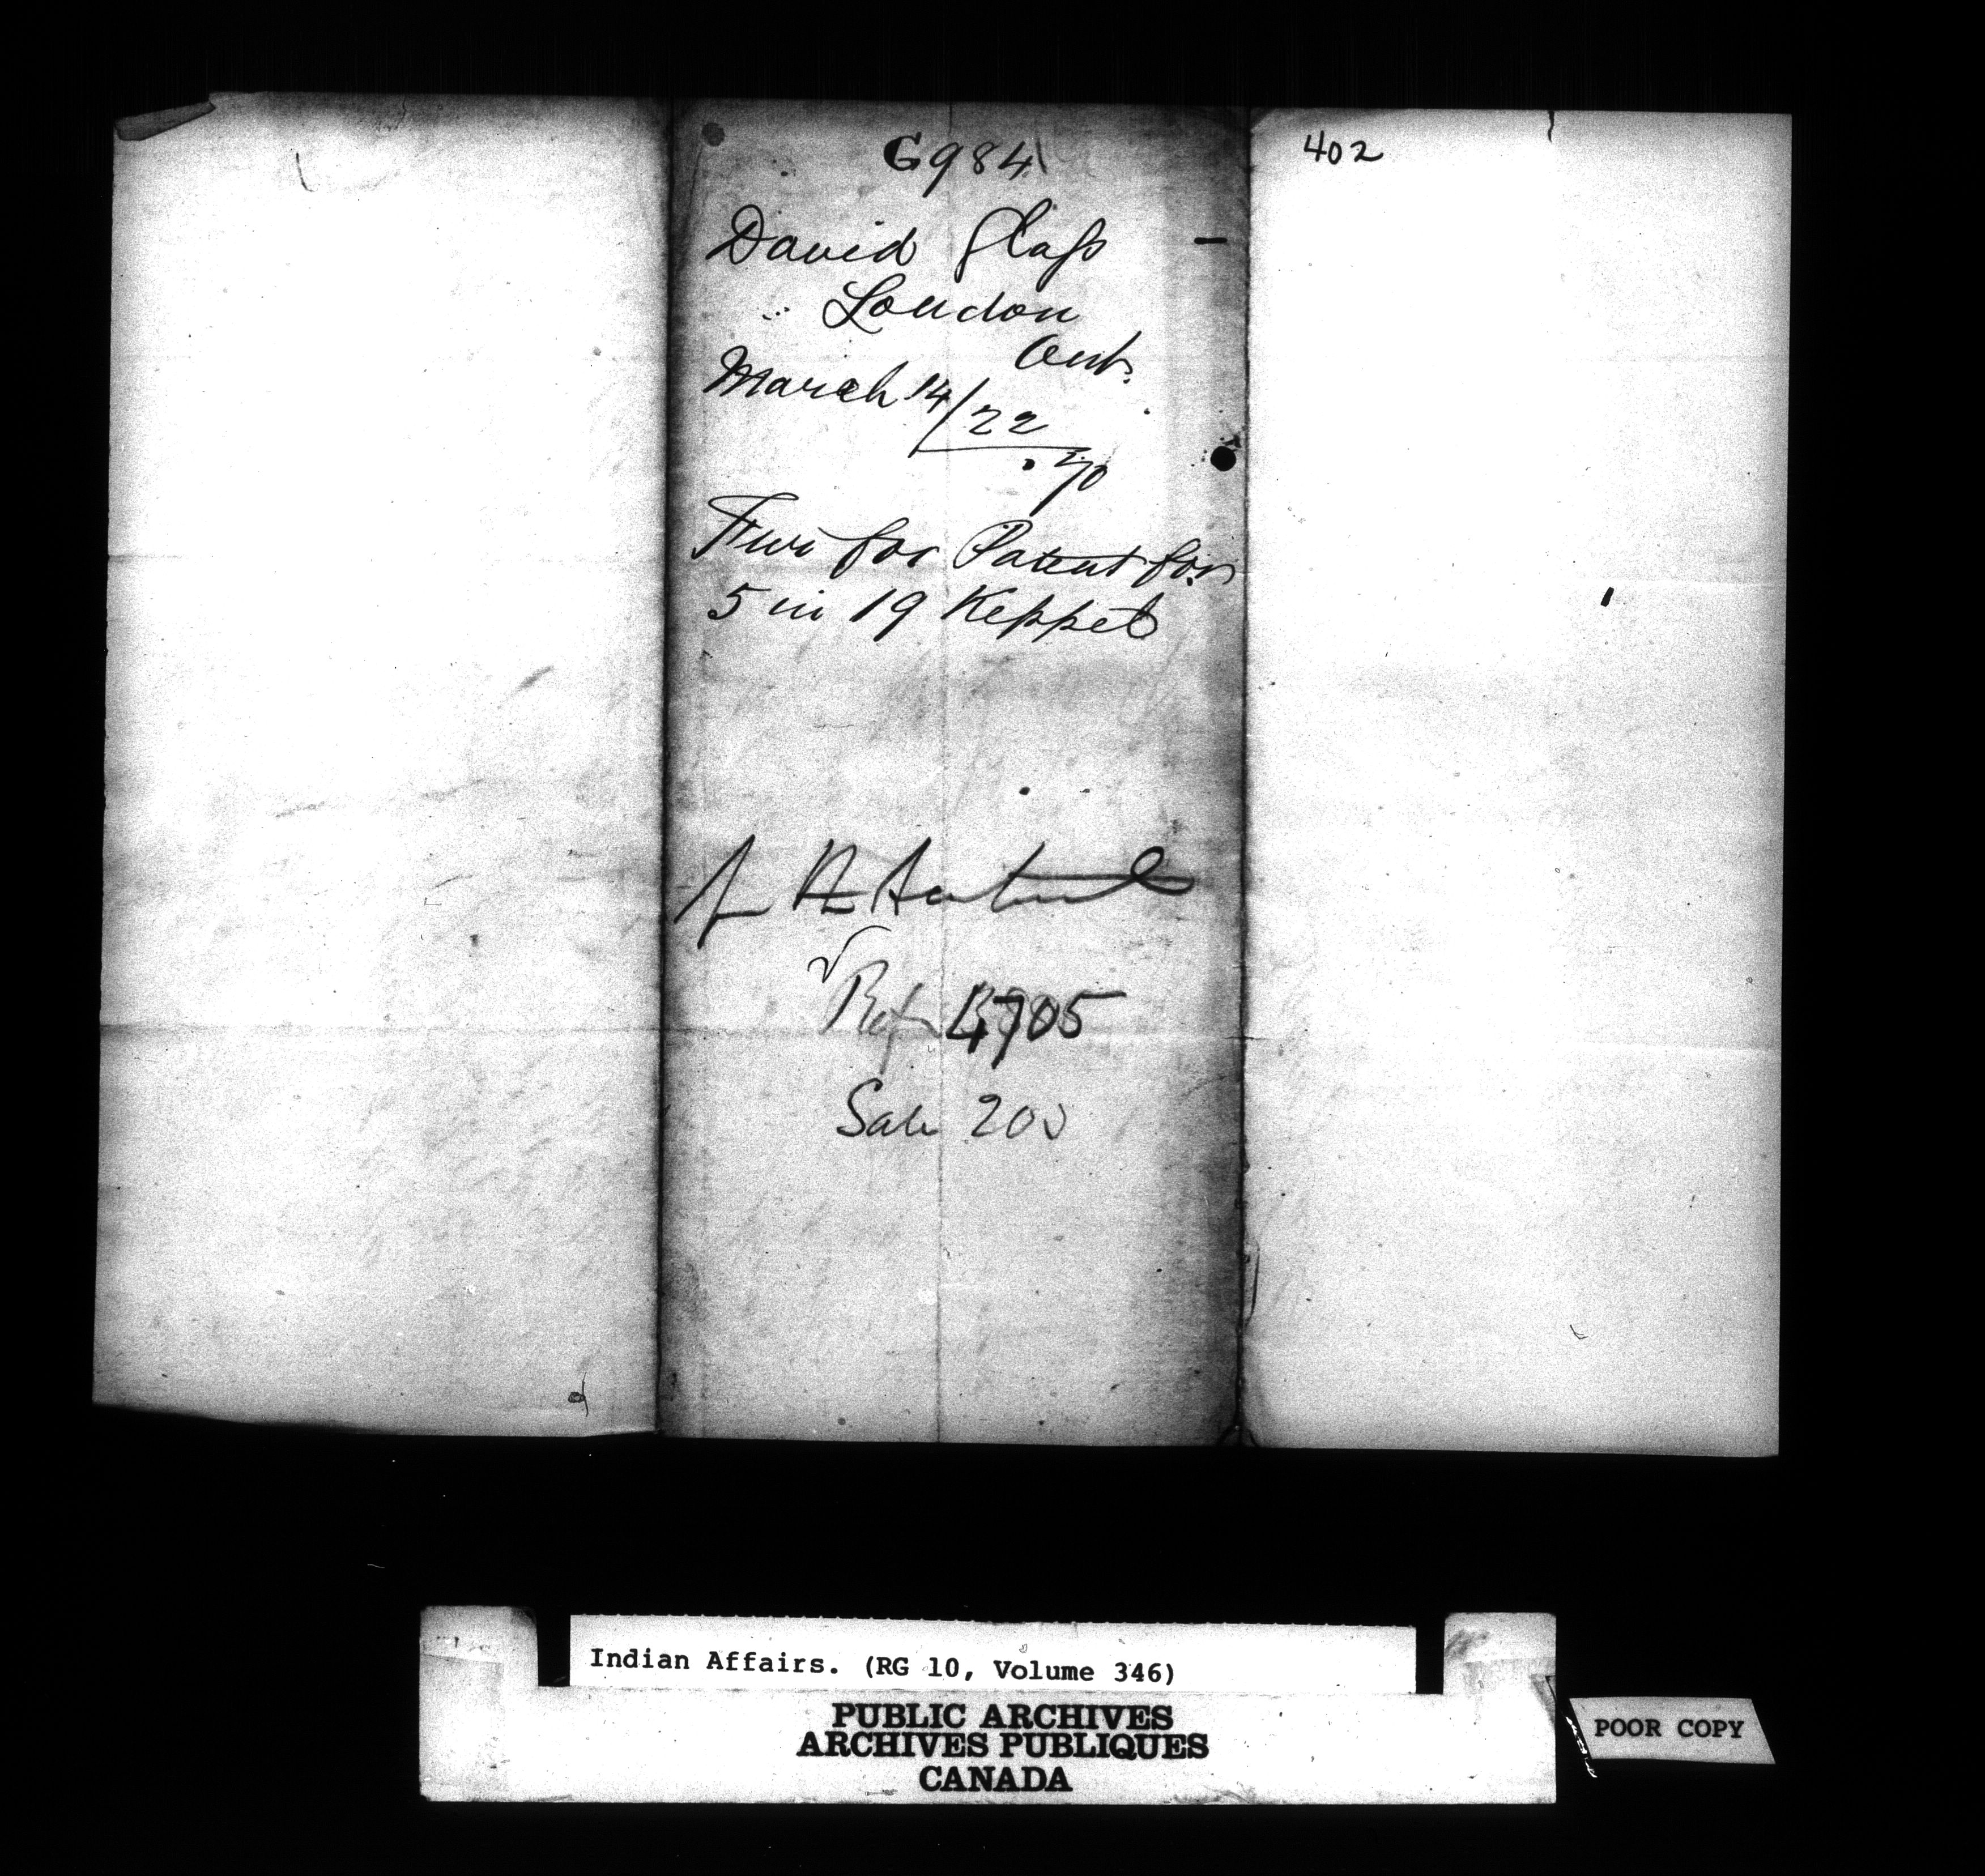 G984
402
David Glass
London
Ont.
March 14/22
70
for Patent for
5 in 19 Keppel
4705
Sale 200
Indian Affairs. (RG 10, Volume 346)
PUBLIC ARCHIVES
ARCHIVES PUBLIQUES
CANADA
POOR COPY